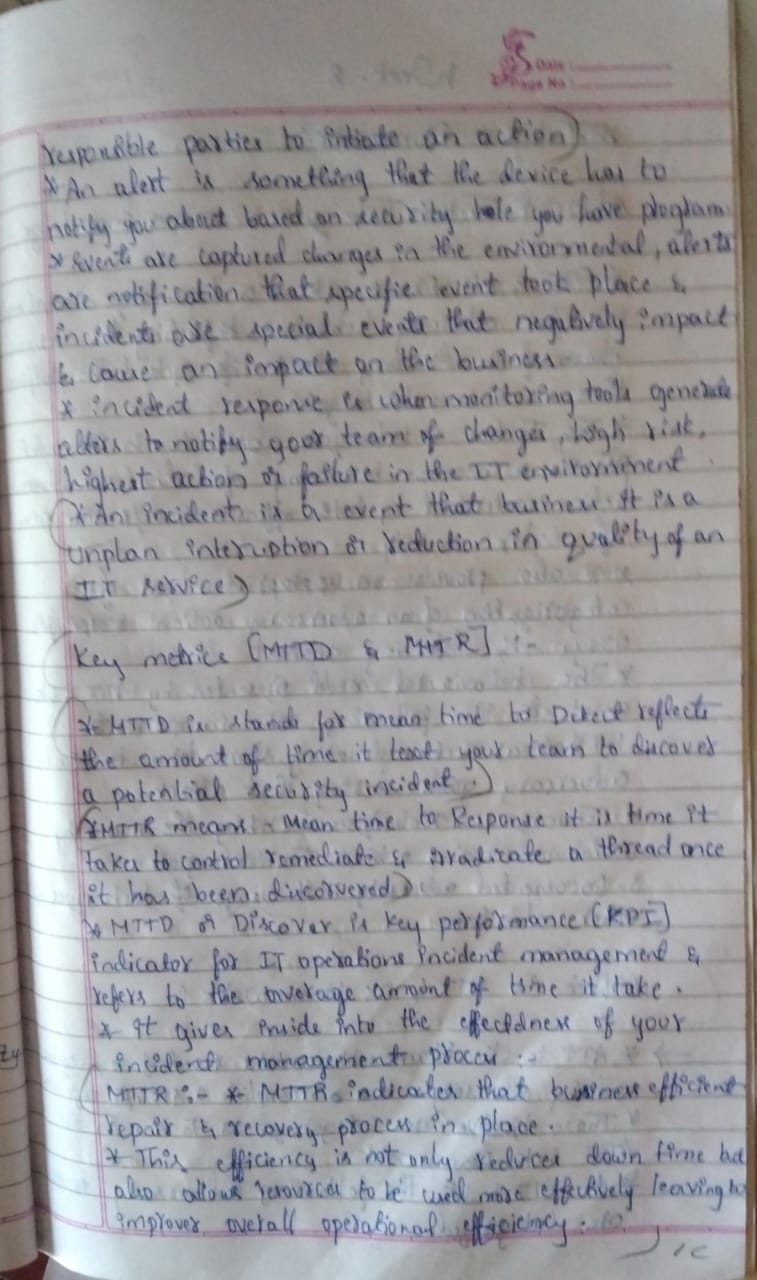 Date :
Page No :
responsible parties to intiate an action)
* An alert is something that the device has to
notify you about based on security hole you have program
* Events are captured changes in the environmental, alerts
are notification that specific event took place &
incidents are special events that negatively impact
& cause an impact on the business
* incident response is when monitoring tools generate
alters to notify your team of changes, high risk,
highest action or failure in the IT environment
* An incident is a event that business it is a
unplan interruption or reduction in quality of an
IT service)
Key metrics [MTTD & MTTR] :-
* MTTD is stands for mean time to Detect reflects
the amount of time it your team to discover
a potential security incident.)
(*MTTR means Mean time to Response it is time it
takes to control remediate & irradicate a thread once
it has been discorvered)
* MTTD or Discover is key performance (KPI)
indicator for IT operations incident management &
refers to the average amount of time it take.
* It gives inside into the of your
incident management process :-
MTTR :- * MTTR indicates that business efficient
repair & recovery process in place.
* This efficiency is not only reduces down time but
also allows resources to be used more effectively leaving to
improves overall operational efficiency.